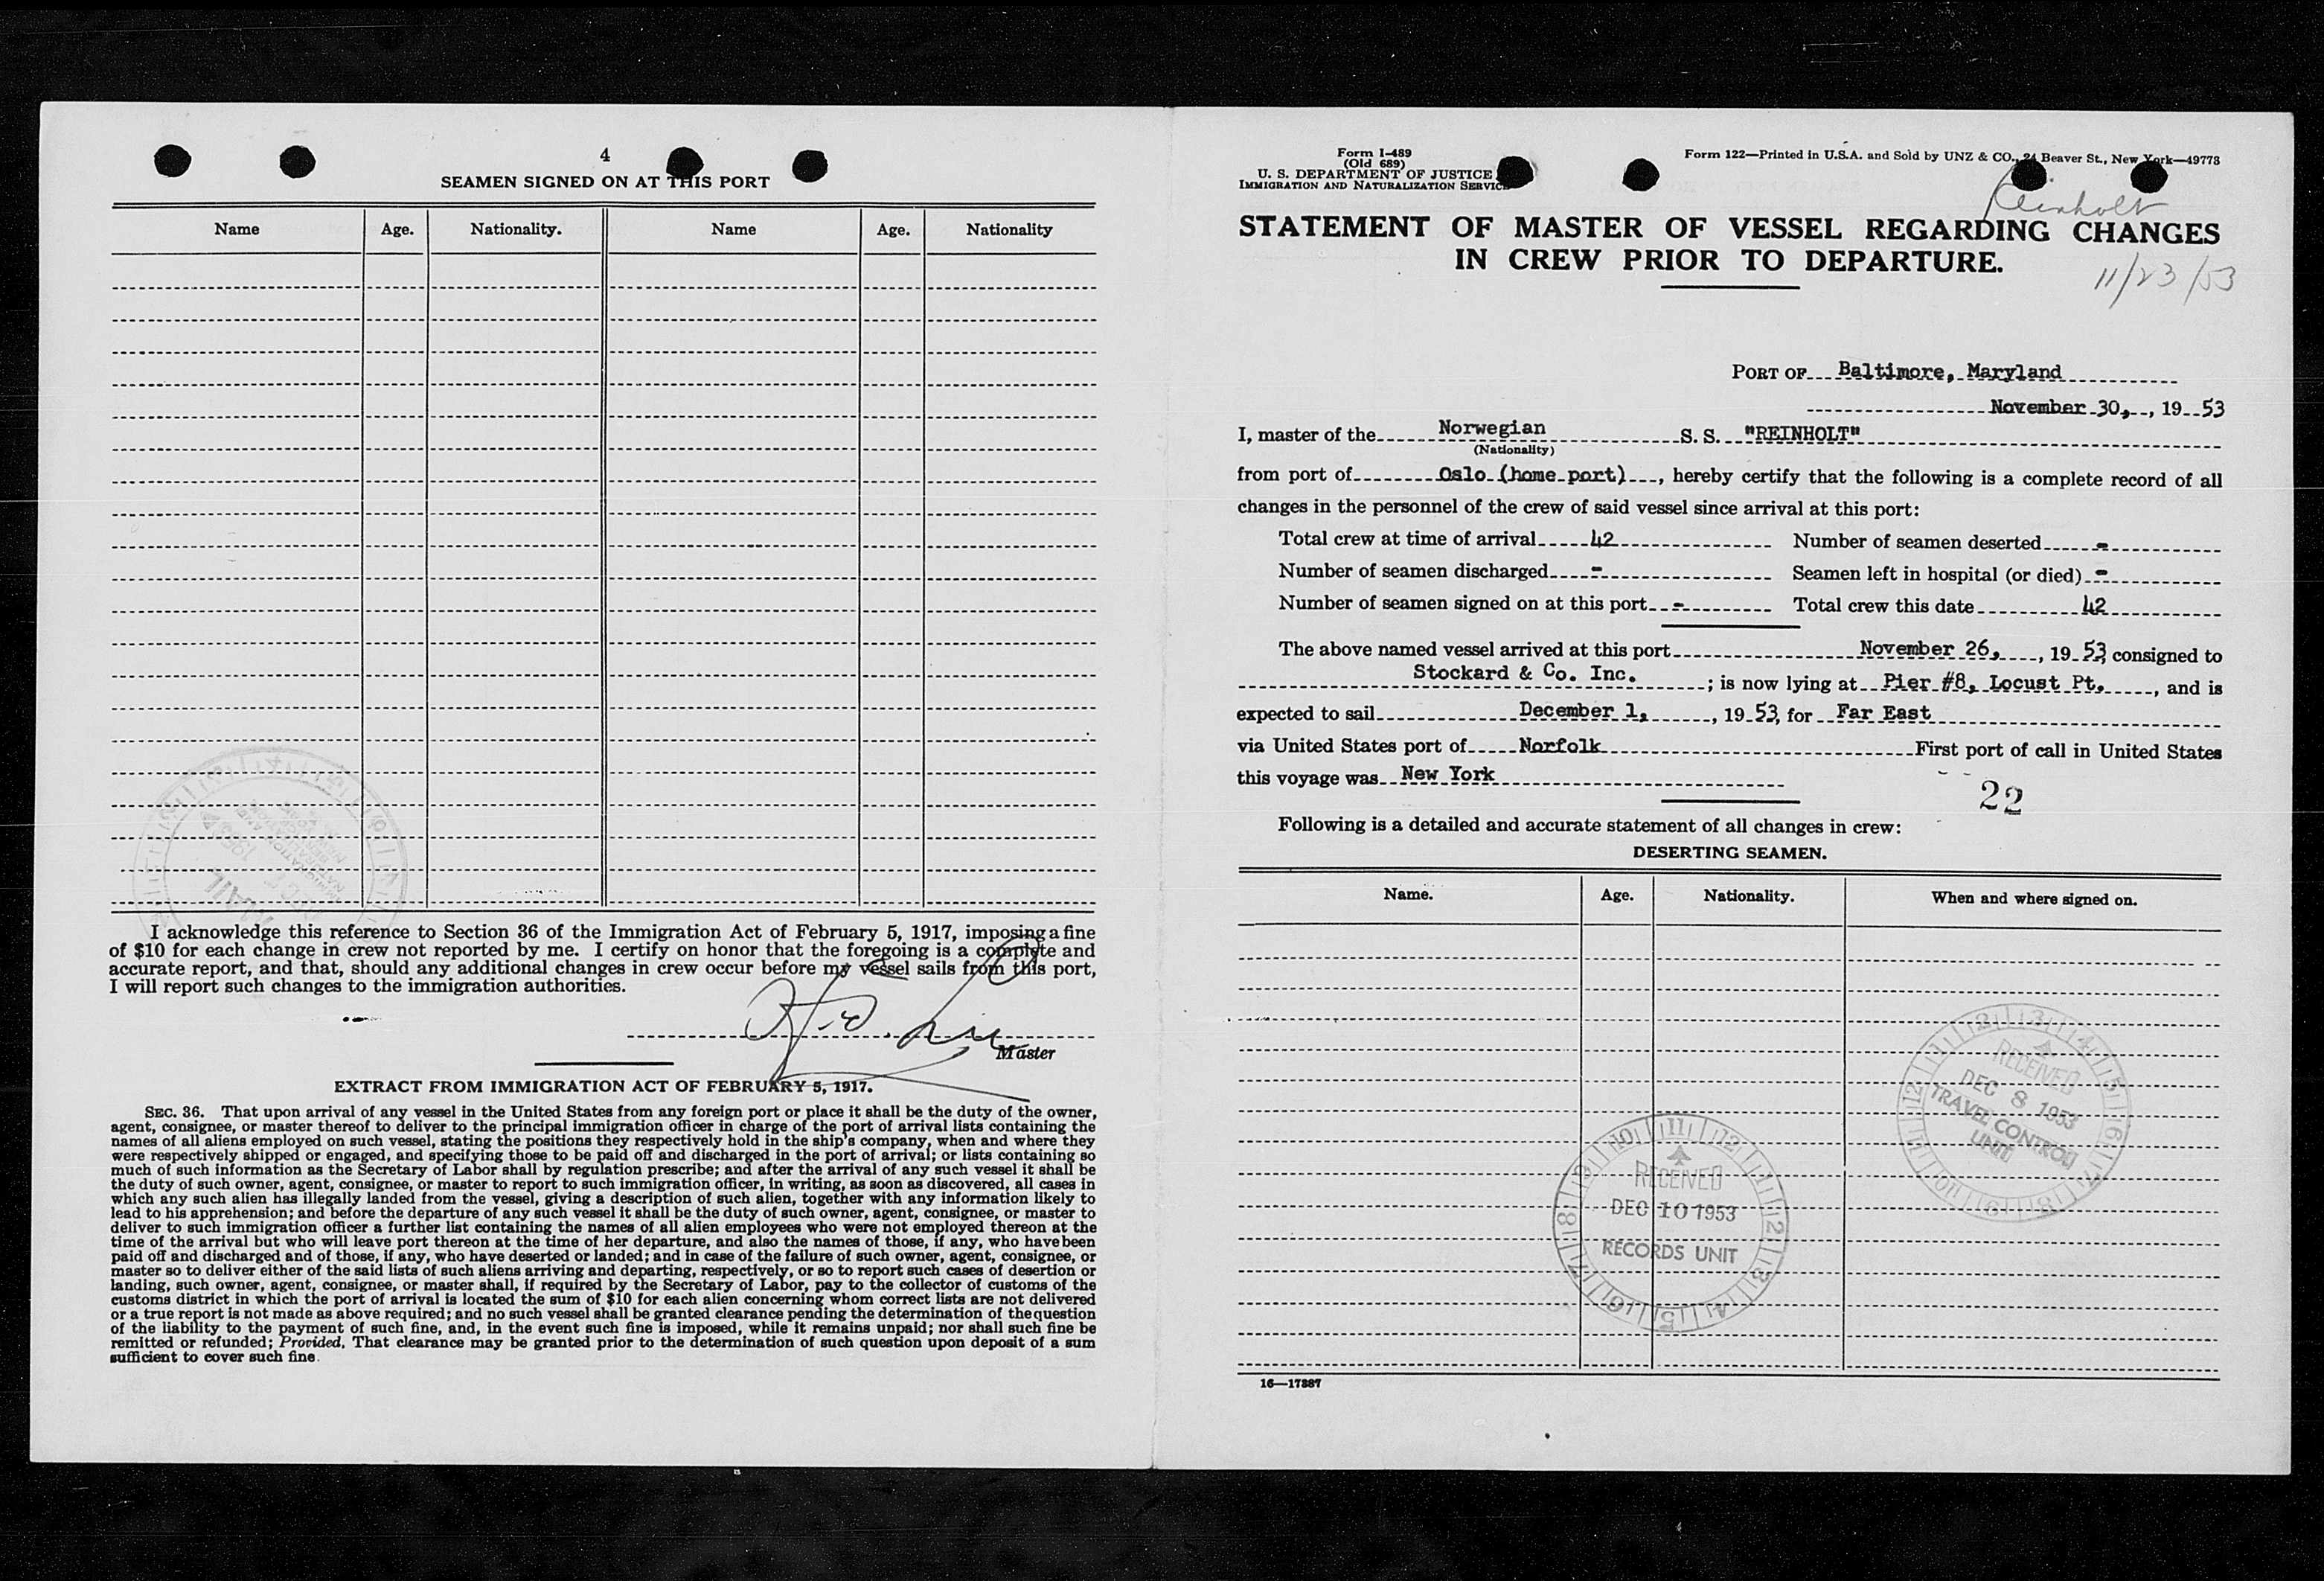 4
SEAMEN SIGNED ON AT THIS PORT
Name Age. Nationality. Name Age. Nationality
I acknowledge this reference to Section 36 of the Immigration Act of February 5, 1917, imposing a fine
of $10 for each change in crew not reported by me. I certify on honor that the foregoing is a complete and
accurate report, and that, should any additional changes in crew occur before my vessel sails from this port,
I will report such changes to the immigration authorities.
Master
EXTRACT FROM IMMIGRATION ACT OF FEBRUARY 5, 1917.
SEC. 36. That upon arrival of any vessel in the United States from any foreign port or place it shall be the duty of the owner,
agent, consignee, or master thereof to deliver to the principal immigration officer in charge of the port of arrival lists containing the
names of all aliens employed on such vessel, stating the positions they respectively hold in the ship's company, when and where they
were respectively shipped or engaged, and specifying those to be paid off and discharged in the port of arrival; or lists containing so
much of such information as the Secretary of Labor shall by regulation prescribe; and after the arrival of any such vessel it shall be
the duty of such owner, agent, consignee, or master to report to such immigration officer, in writing, as soon as discovered, all cases in
which any such alien has illegally landed from the vessel, giving a description of such alien, together with any information likely to
lead to his apprehension; and before the departure of any such vessel it shall be the duty of such owner, agent, consignee, or master to
deliver to such immigration officer a further list containing the names of all alien employees who were not employed thereon at the
time of the arrival but who will leave port thereon at the time of her departure, and also the names of those, if any, who have been
paid off and discharged and of those, if any, who have deserted or landed; and in case of the failure of such owner, agent, consignee, or
master so to deliver either of the said lists of such aliens arriving and departing, respectively, or so to report such cases of desertion or
landing, such owner, agent, consignee, or master shall, if required by the Secretary of Labor, pay to the collector of customs of the
customs district in which the port of arrival is located the sum of $10 for each alien concerning whom correct lists are not delivered
or a true report is not made as above required; and no such vessel shall be granted clearance pending the determination of the question
of the liability to the payment of such fine, and, in the event such fine is imposed, while it remains unpaid; nor shall such fine be
remitted or refunded; Provided, That clearance may be granted prior to the determination of such question upon deposit of a sum
sufficient to cover such fine.
Form I-489
(Old 689)
U. S. DEPARTMENT OF JUSTICE
IMMIGRATION AND NATURALIZATION SERVICE
Form 122—Printed in U.S.A. and Sold by UNZ & CO., 24 Beaver St., New York—49773
Reinholt
STATEMENT OF MASTER OF VESSEL REGARDING CHANGES
IN CREW PRIOR TO DEPARTURE.
11/23/53
PORT OF Baltimore, Maryland
November 30, , 19 53
I, master of the Norwegian S. S. "REINHOLT"
(Nationality)
from port of Oslo (home port) , hereby certify that the following is a complete record of all
changes in the personnel of the crew of said vessel since arrival at this port:
Total crew at time of arrival 42 Number of seamen deserted -
Number of seamen discharged - Seamen left in hospital (or died) -
Number of seamen signed on at this port - Total crew this date 42
The above named vessel arrived at this port November 26, , 19 53 consigned to
Stockard & Co. Inc. ; is now lying at Pier #8, Locust Pt. , and is
expected to sail December 1, , 19 53, for Far East
via United States port of Norfolk First port of call in United States
this voyage was New York
22
Following is a detailed and accurate statement of all changes in crew:
DESERTING SEAMEN.
Name. Age. Nationality. When and where signed on.
RECEIVED
DEC 8 1953
TRAVEL CONTROL
UNIT
RECEIVED
DEC 10 1953
RECORDS UNIT
16—17387